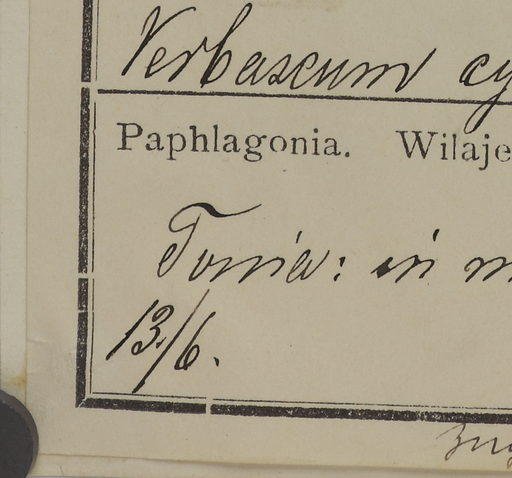 Verbascum cy
Paphlagonia. Wilaje
Tossia: in m
13./6.